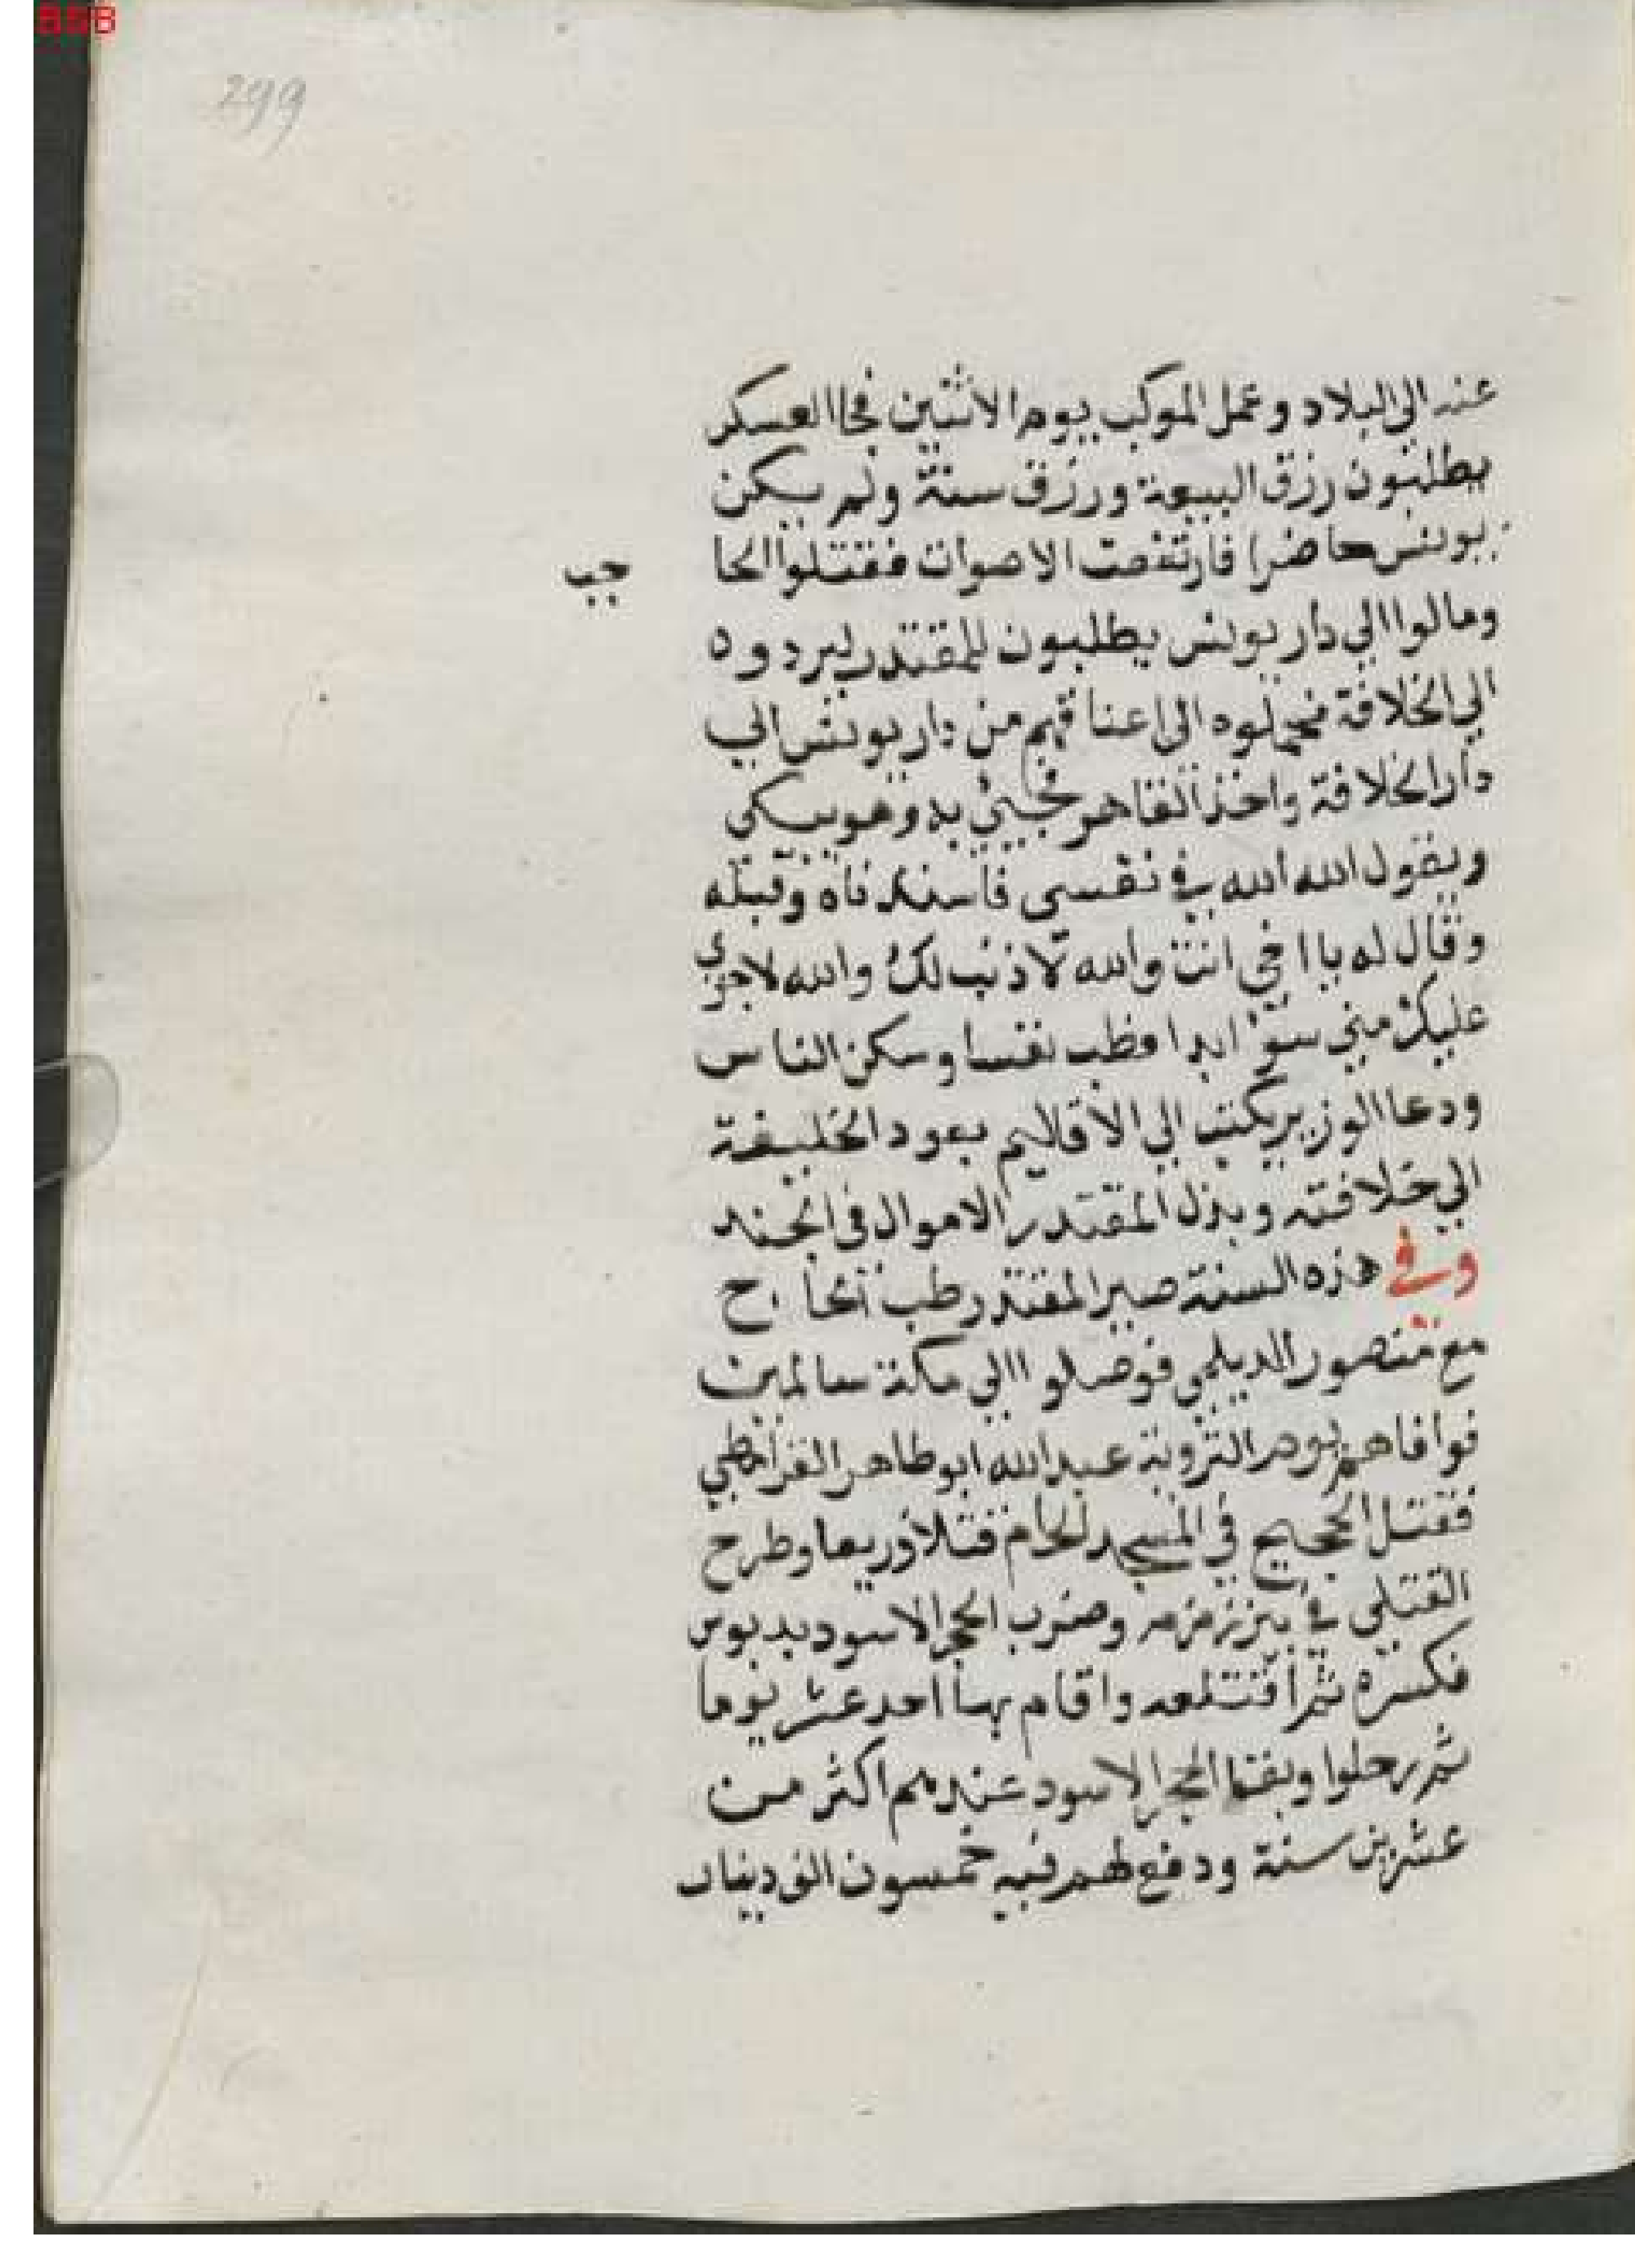 BSB
299
عنه الى البلاد وعمل الموكب يوم الاثنين فجا العسكر
يطلبون رزق البيعة ورزق سنة ولم يكن
يونس حاضرا فارتفعت الاصوات فقتلوا الحا جب
ومالوا الي دار يونس يطلبون للمقتدر ليردوه
الي الخلافة فحملوه الى اعناقهم من دار يونس الي
دار الخلافة واخذ القاهر فجيئ به وهو يبكى
ويقول الله الله في نفسي فاستدناه وقبله
وقال له يا اخي انت والله لا ذنب لك والله لا جري
عليك مني سؤ ابدا فطب نفسا وسكن الناس
ودعا الوزير يكتب الي الاقاليم بعود الخليفة
الي خلافته وبذل المقتدر الاموال فى الجند
وفي هذه السنة صير المقتدر
مع منصور الديلمي فوصلوا الي مكة سالمين
فوافاهم يوم التروية عبد الله ابو طاهر القرامطي
فقتل الحجيج في المسجد الحرام قتلا ذريعا وطرح
القتلي في بير زمزم وضرب الحجر الاسود بدبوس
فكسره ثم اقتلعه واقام بها احد عشر يوما
ثم رحلوا وبقا الحجر الاسود عندهم اكثر من
عشرين سنة ودفع لهم فيه خمسون الف دينار